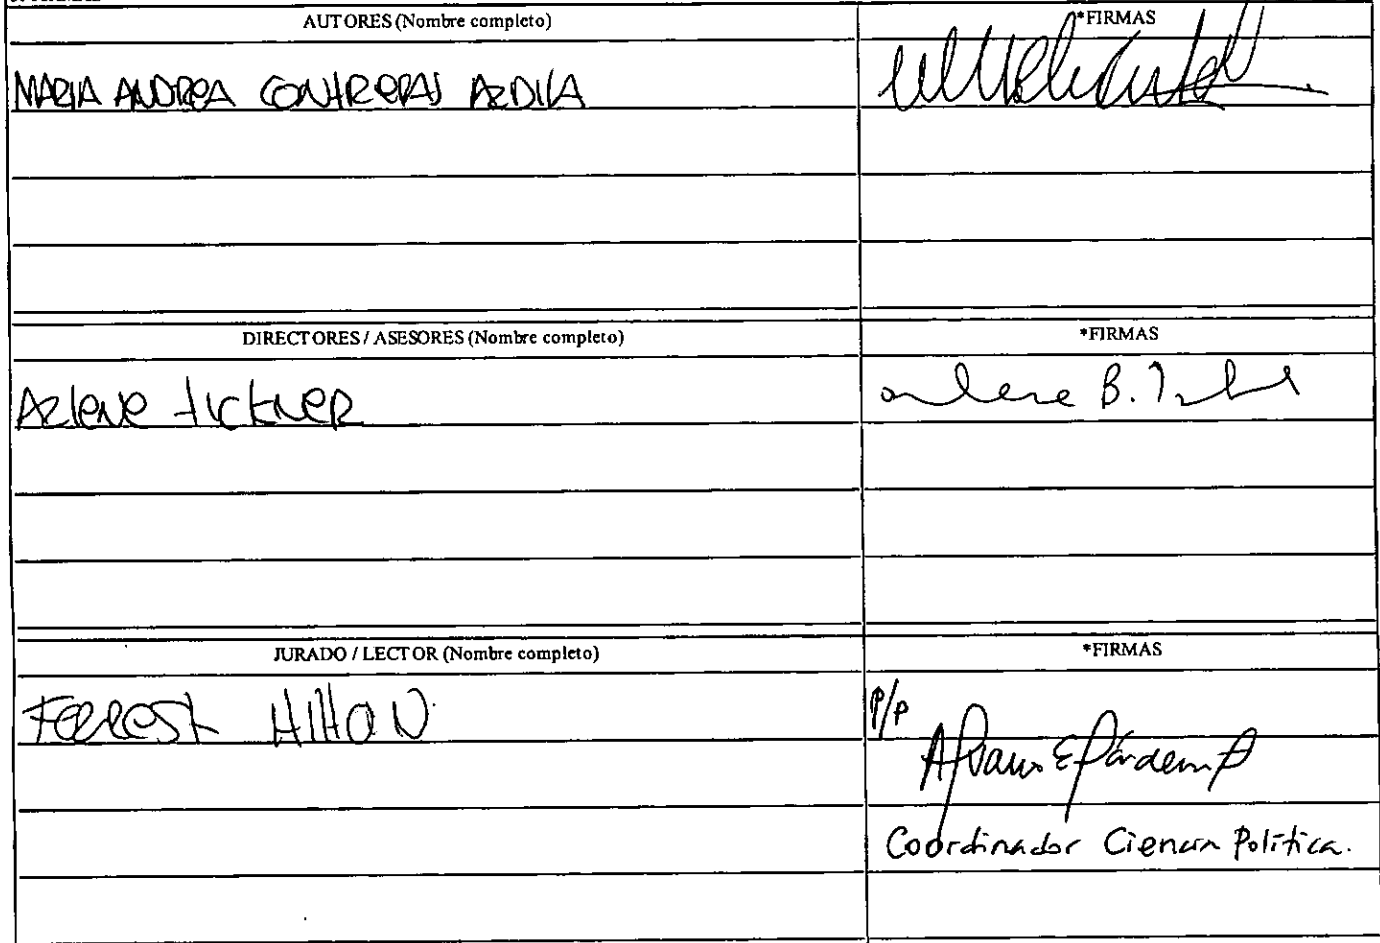 AUTORES (Nombre completo) *FIRMAS
MARIA ANDREA CONTRERAS ARDILA
DIRECTORES / ASESORES (Nombre completo) *FIRMAS
Arlene tickner arlene B.
JURADO / LECTOR (Nombre completo) *FIRMAS
FORREST HIltoN P/P
Coordinador Ciencia Política.